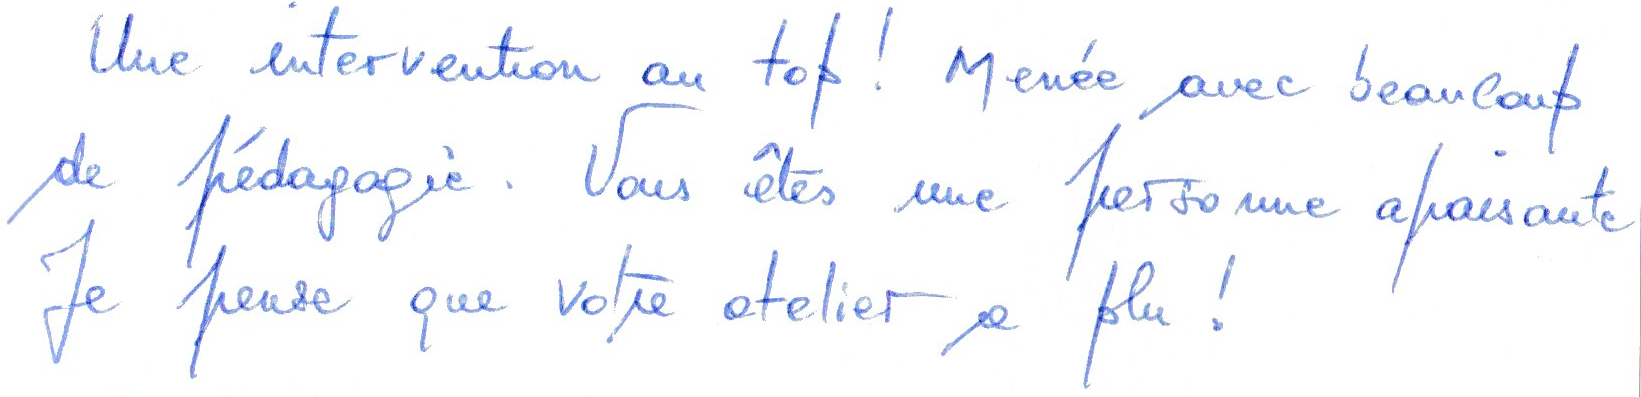 Une intervention au top ! Menée avec beaucoup
de pédagogie. Vous êtes une personne apaisante
Je pense que votre atelier a plu !